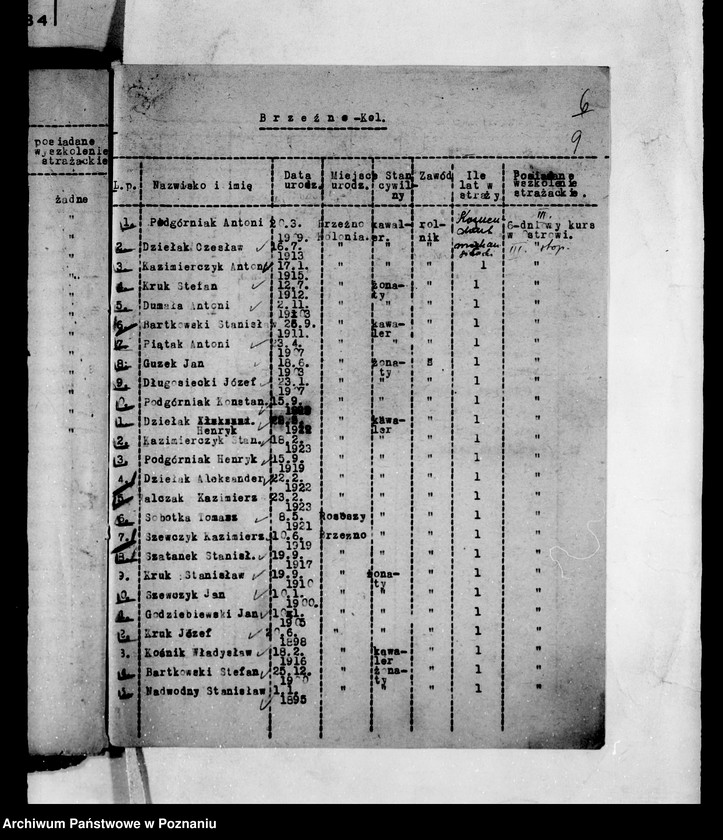 34
posiadane
wyszkolenie
strażackie
żadne
6
9
Brzeźno-Kol.
L.p. Nazwisko i imię Data urodz. Miejsce urodz. Stan cywilny Zawód Ile lat w straży Posiadane wszkolenie strażackie.
1. Podgórniak Antoni 20.3. Brzeźno kawal- rol- III.
1909. Kolonia. er. nik 6-dniowy kurs w Ostrowi.
2. Dziełak Czesław 16.7. " " " III. stop.
1913
3. Kazimierczyk Antoni 17.1. " " " 1 "
1915.
4. Kruk Stefan 12.7. " żona- " 1 "
1912. ty
5. Dumała Antoni 2.11. " " " 1 "
6. Bartkowski Stanisław 26.9. " kawa- " 1 "
1911. ler
7. Piątak Antoni 23.4. " " " 1 "
1907
8. Guzek Jan 18.6. " żona- " 1 "
1903 ty
9. Długosiecki Józef 23.1. " " " 1 "
1907
0. Podgórniak Konstan. 15.9. " " " 1 "
1. Dziełak " kawa- " 1 "
Henryk ler
2. Kazimierczyk Stan. 18.2. " " " 1 "
1923
3. Podgórniak Henryk 15.9. " " " 1 "
1919
4. Dziełak Aleksander 22.2. " " " 1 "
1922
5. alczak Kazimierz 23.2. " " " 1 "
1923
6. Sobotka Tomasz 8.5. Rososzy " " 1 "
1921
7. Szewczyk Kazimierz 10.6. Brzeźno " " 1 "
1919
8. Szatanek Stanisł. 19.9. " " " 1 "
1917
9. Kruk Stanisław 19.9. " żona- " 1 "
1910 ty
0. Szewczyk Jan 10.1. " " " 1 "
1900.
1. Godziebiewski Jan 10.1. " " " 1 "
1905
2. Kruk Józef 20.6. " " " 1 "
1898
3. Kośnik Władysław 18.2. " kawa- " 1 "
1916 ler
4. Bartkowski Stefan 25.12. " żona- " 1 "
ty
5. Nadwodny Stanisław 1.1. " " " 1 "
1895
Archiwum Państwowe w Poznaniu